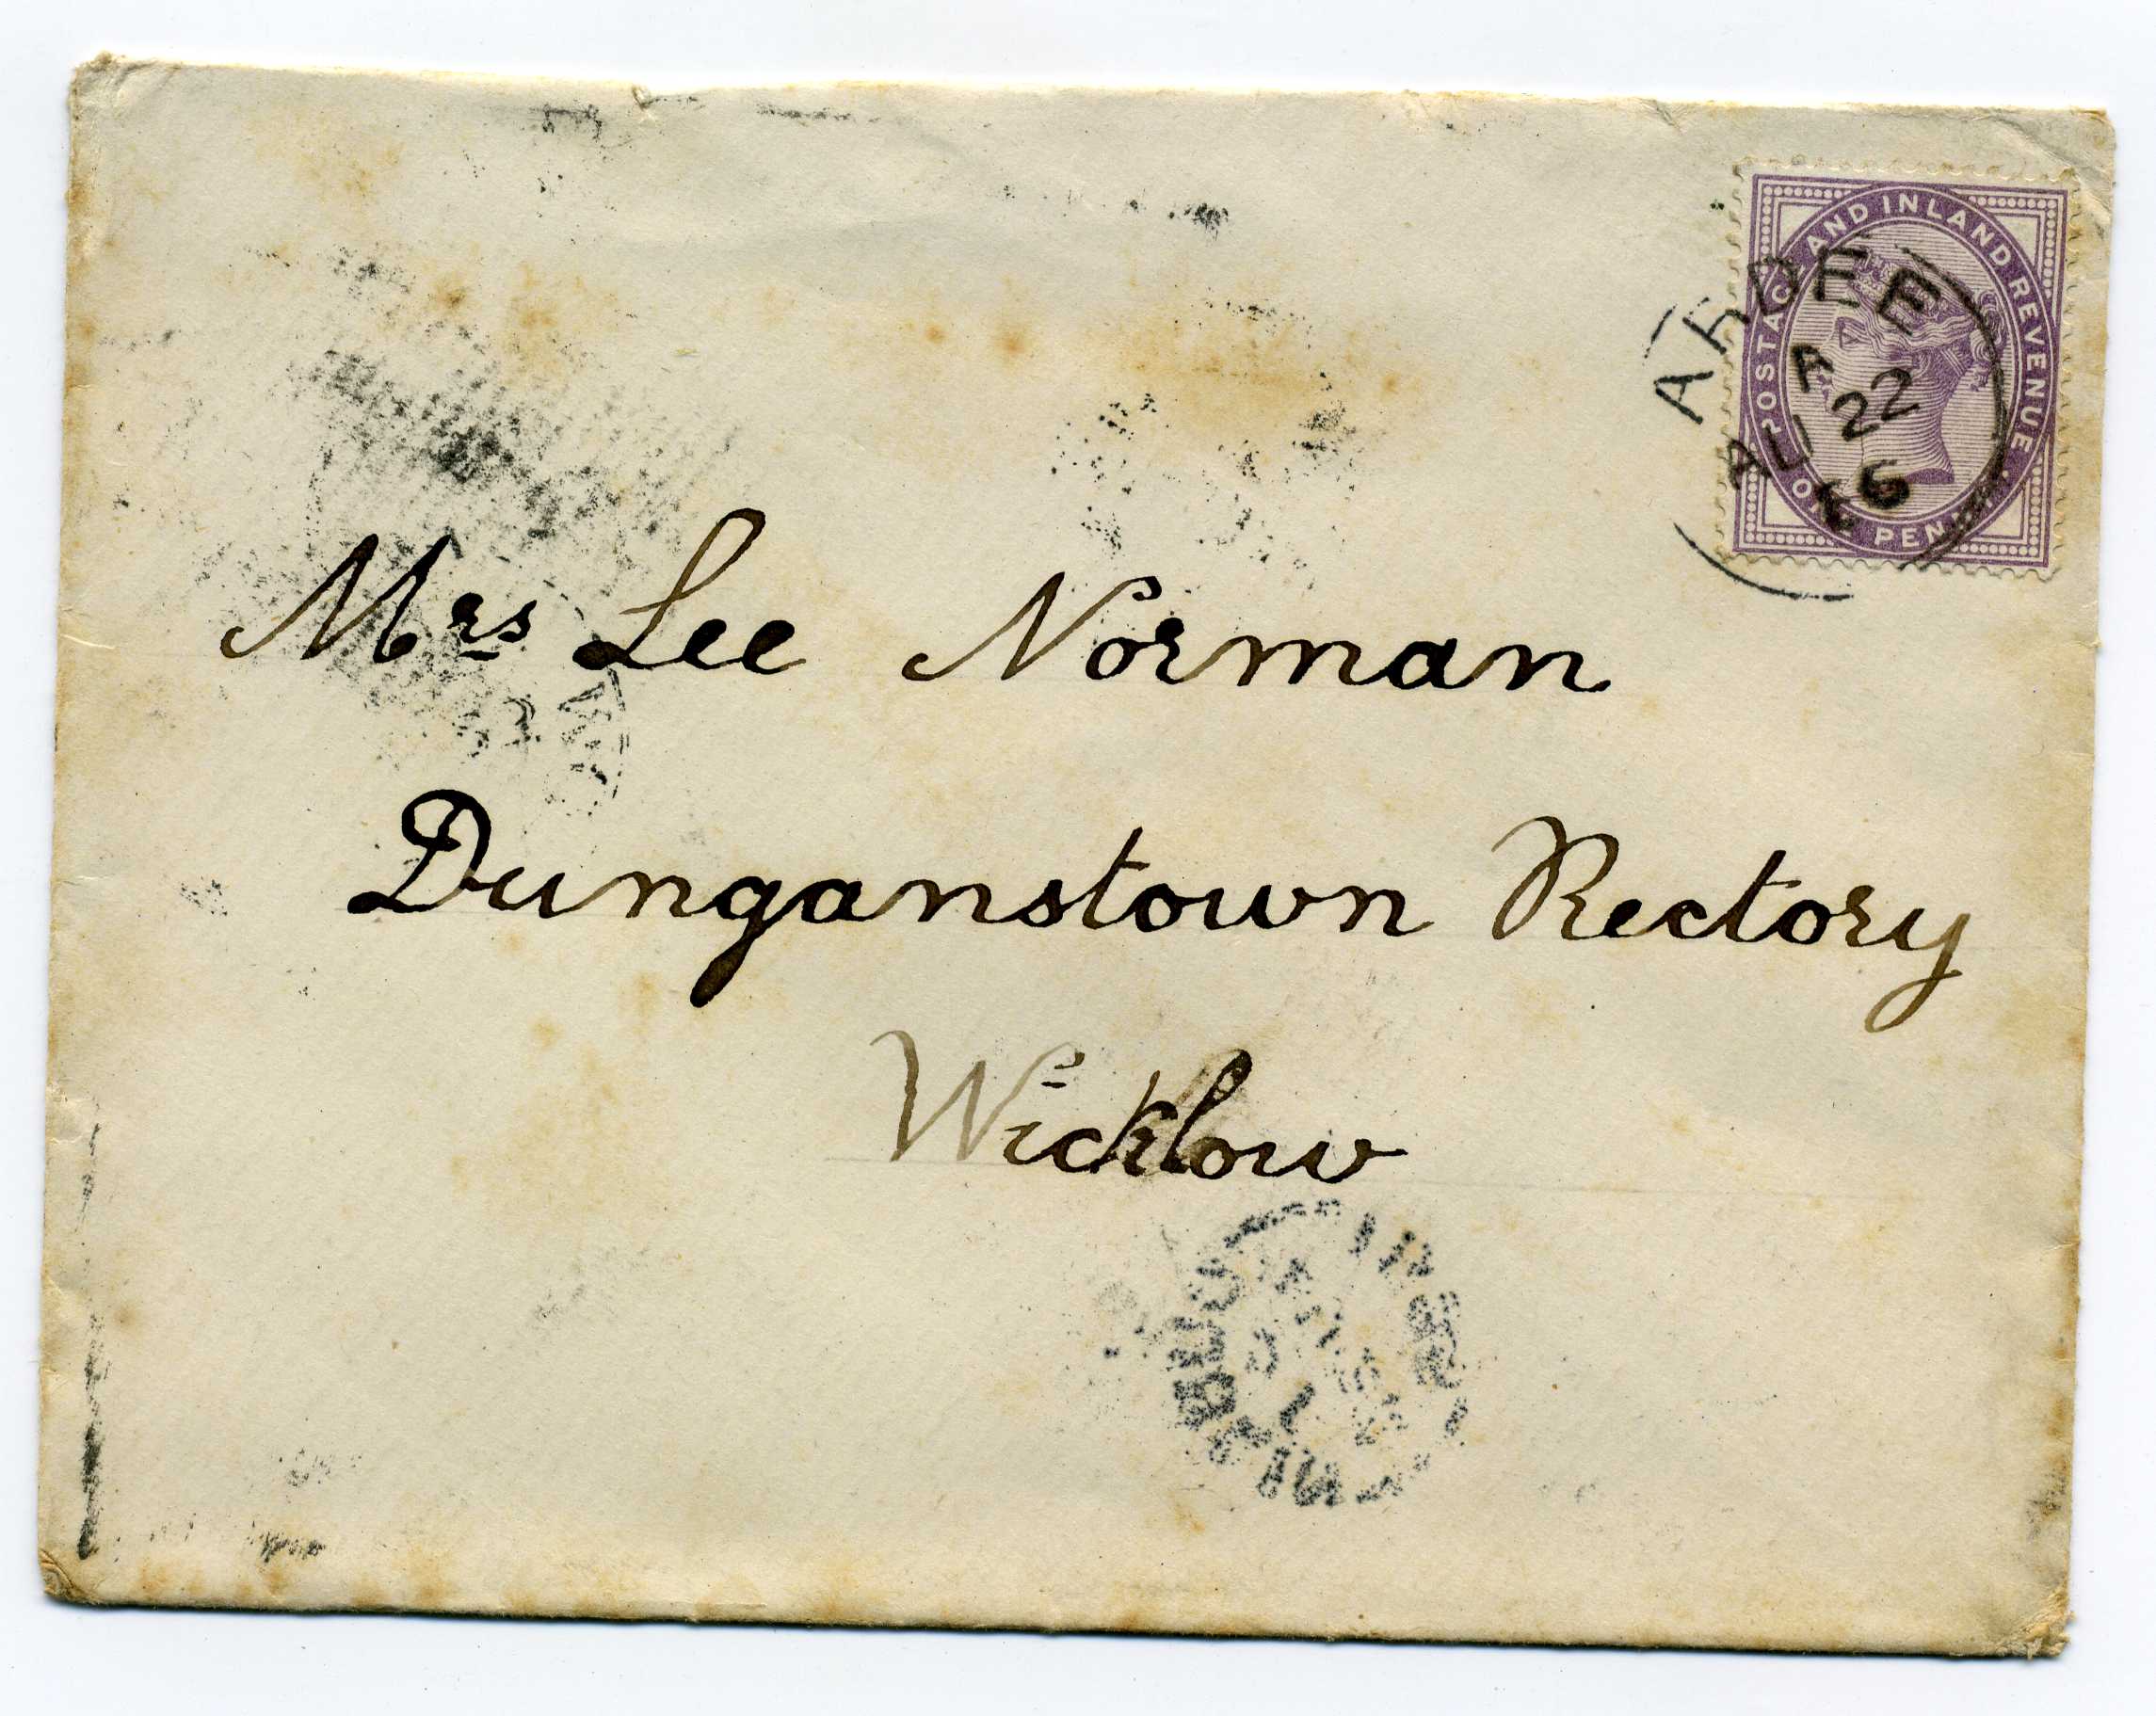 POSTAGE AND INLAND REVENUE
ONE PENNY
ARDEE
A
AU 22
Mrs Lee Norman
Dunganstown Rectory
Wicklow